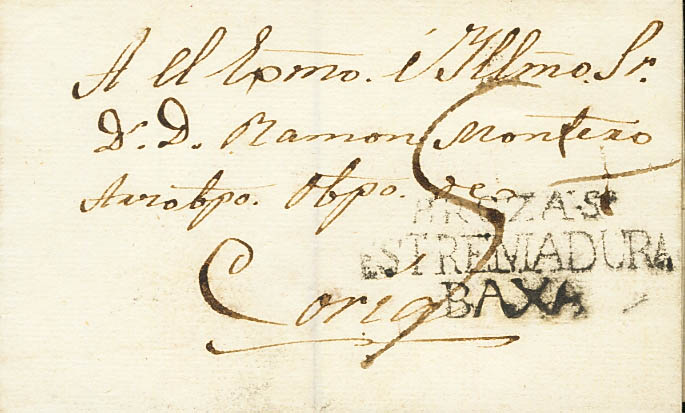 A El Exmo. é Yllmo. Sr.
Dr. D. Ramon Montero
Arzobpo. Obpo. de
Coria
ESTREMADURA
BAXA